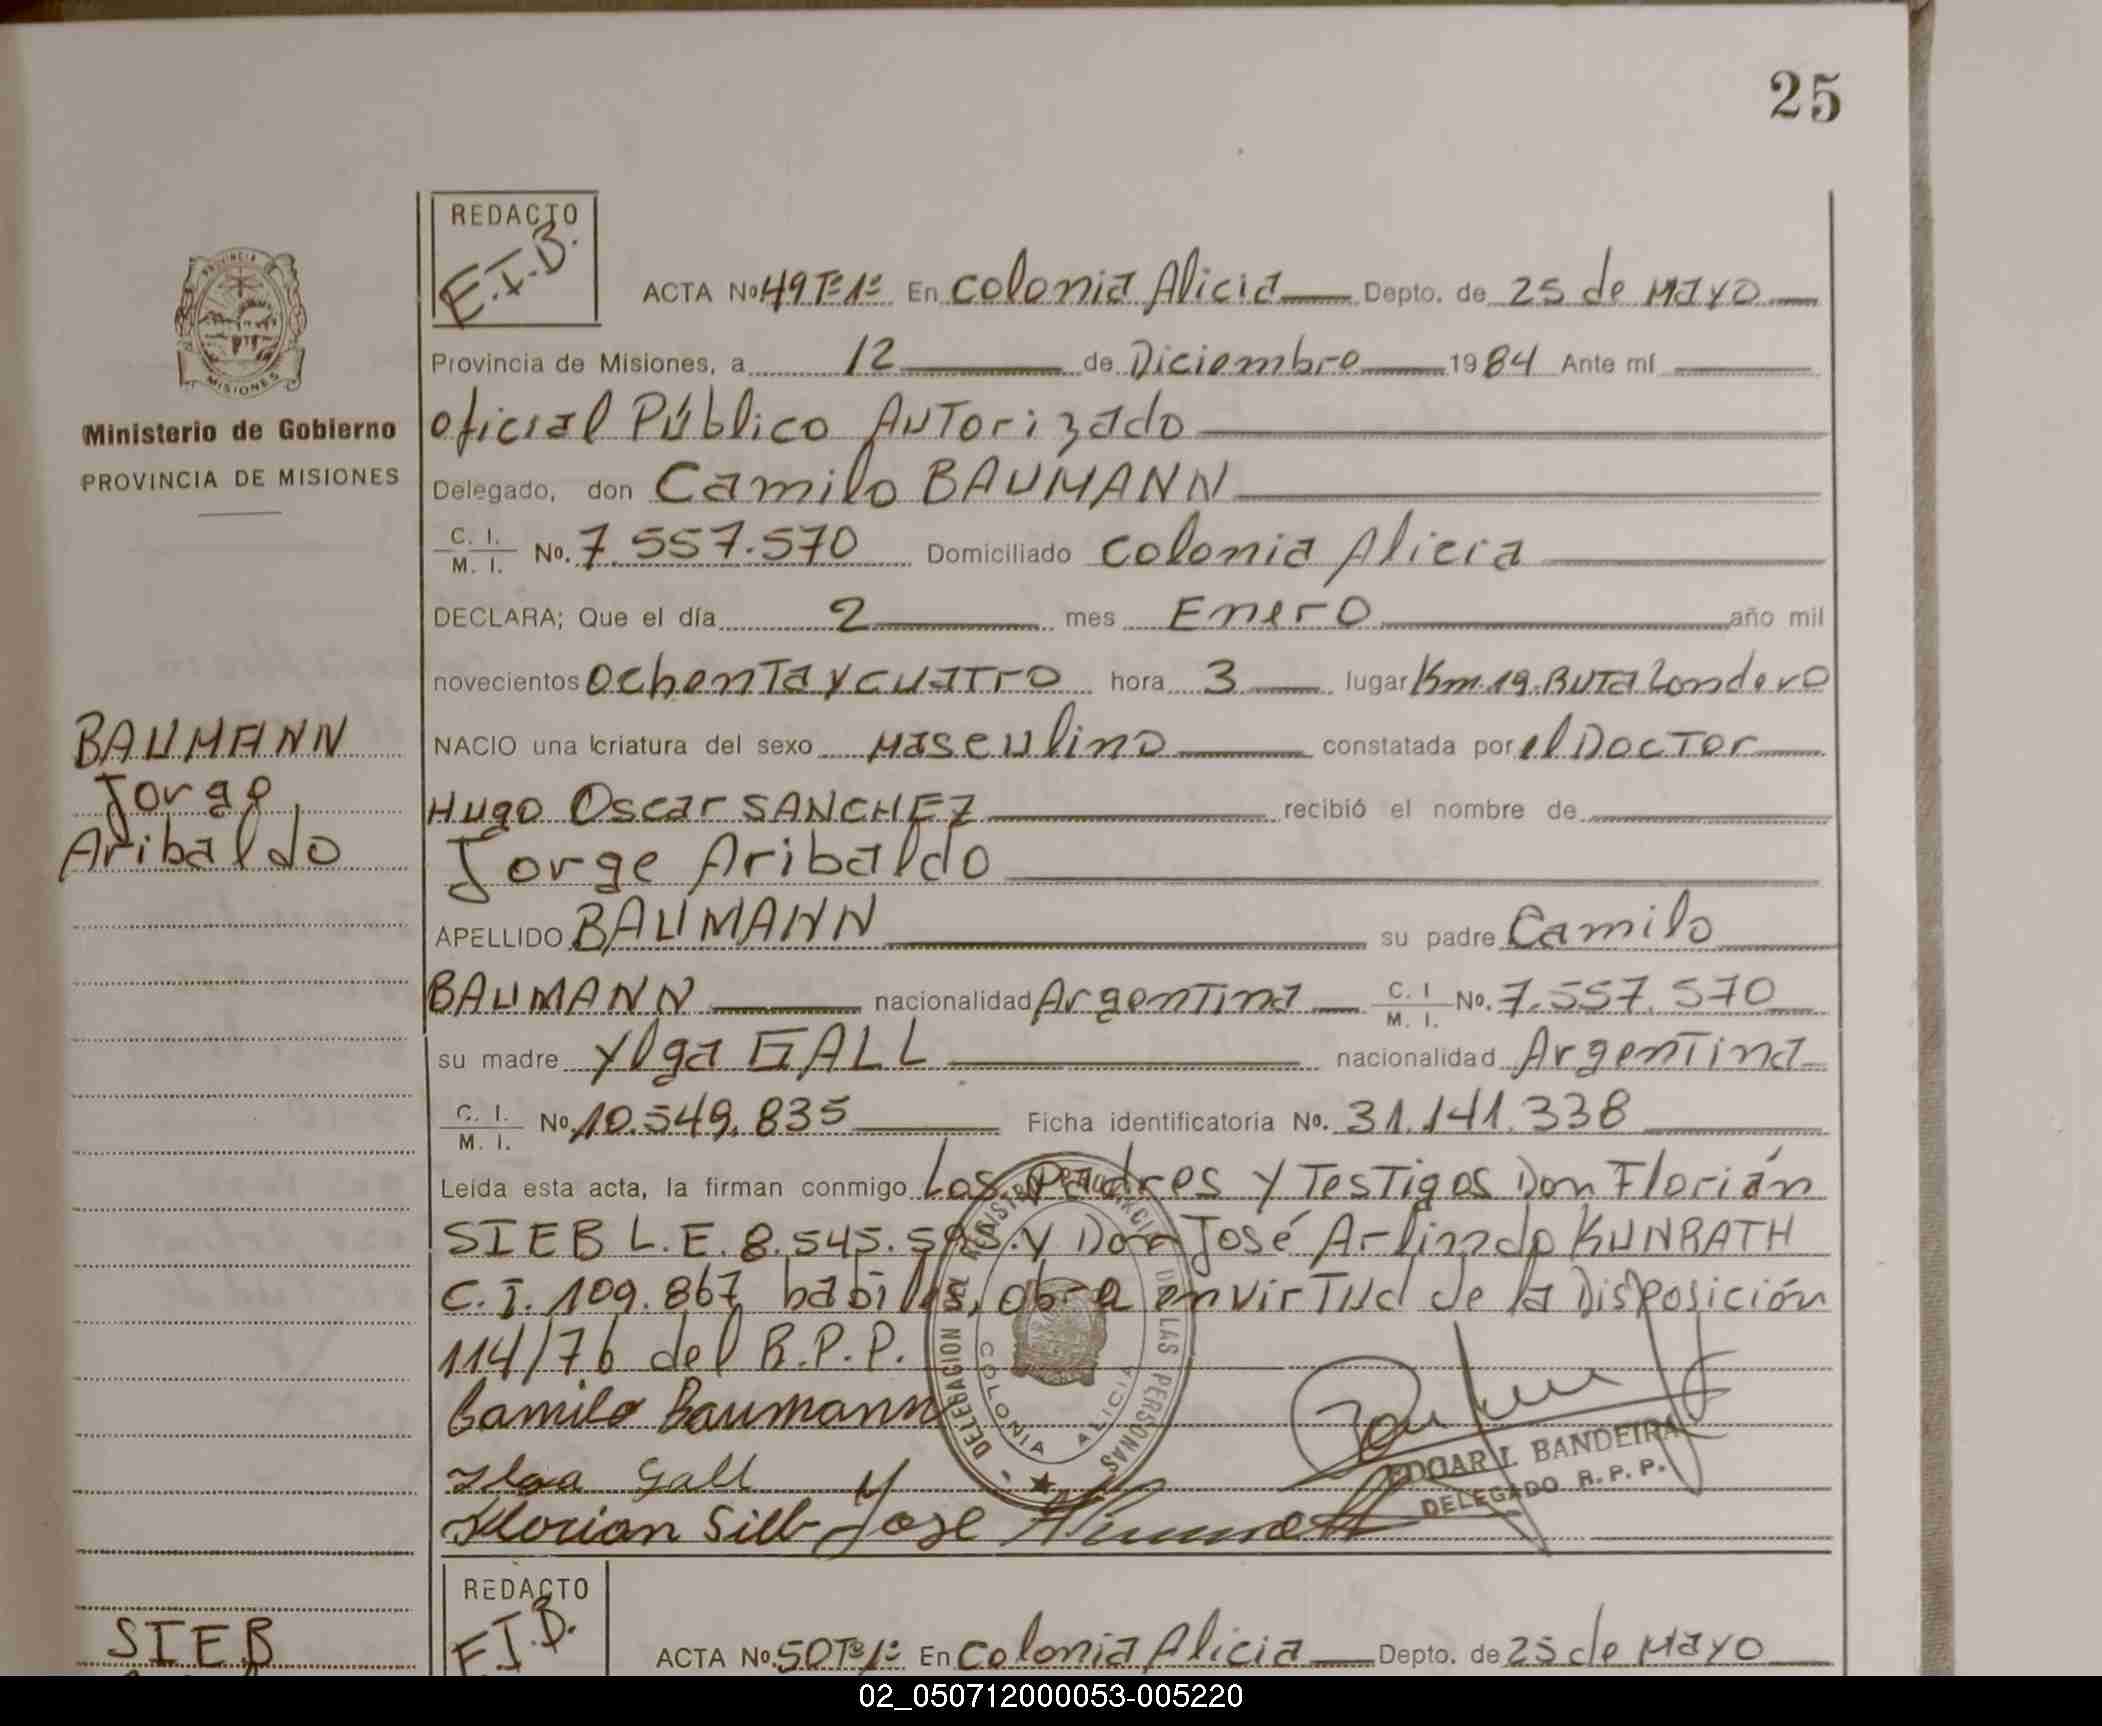 25
REDACTO
E.I.B.
ACTA No. 49 Tº 1º En Colonia Alicia Depto. de 25 de Mayo
Provincia de Misiones, a 12 de Diciembre 1984 Ante mí
Oficial Público Autorizado
Delegado, don Camilo BAUMANN
C. I. M. I. No. 7.557.570 Domiciliado Colonia Alicia
DECLARA; Que el día 2 mes Enero año mil
novecientos Ochenta y cuatro hora 3 lugar Km. 19. Ruta Londero
NACIO una criatura del sexo Masculino constatada por el Doctor
Hugo Oscar SANCHEZ recibió el nombre de
Jorge Aribaldo
APELLIDO BAUMANN su padre Camilo
BAUMANN nacionalidad Argentina C. I M. I. No. 7.557.570
su madre Ylga GALL nacionalidad Argentina
C. I. M. I. No. 10.549.835 Ficha identificatoria No. 31.141.338
Leída esta acta, la firman conmigo Los padres y Testigos Don Florián
SIEB L.E. 8.545. y Don José Arlindo KUNRATH
C.I. 109.867 habiles, obra en virtud de la Disposición
114/76 del R.P.P.
Camilo Baumann
Ilga Gall
Florian Sieb José
EDGAR I. BANDEIRA
DELEGADO R.P.P.
DELEGACION REGISTRO PROVINCIAL DE LAS PERSONAS
COLONIA ALICIA
PROVINCIA
MISIONES
Ministerio de Gobierno
PROVINCIA DE MISIONES
BAUMANN
Jorge
Aribaldo
REDACTO
E.I.B.
SIEB
ACTA No. 50 Tº 1º En Colonia Alicia Depto. de 25 de Mayo
02_050712000053-005220